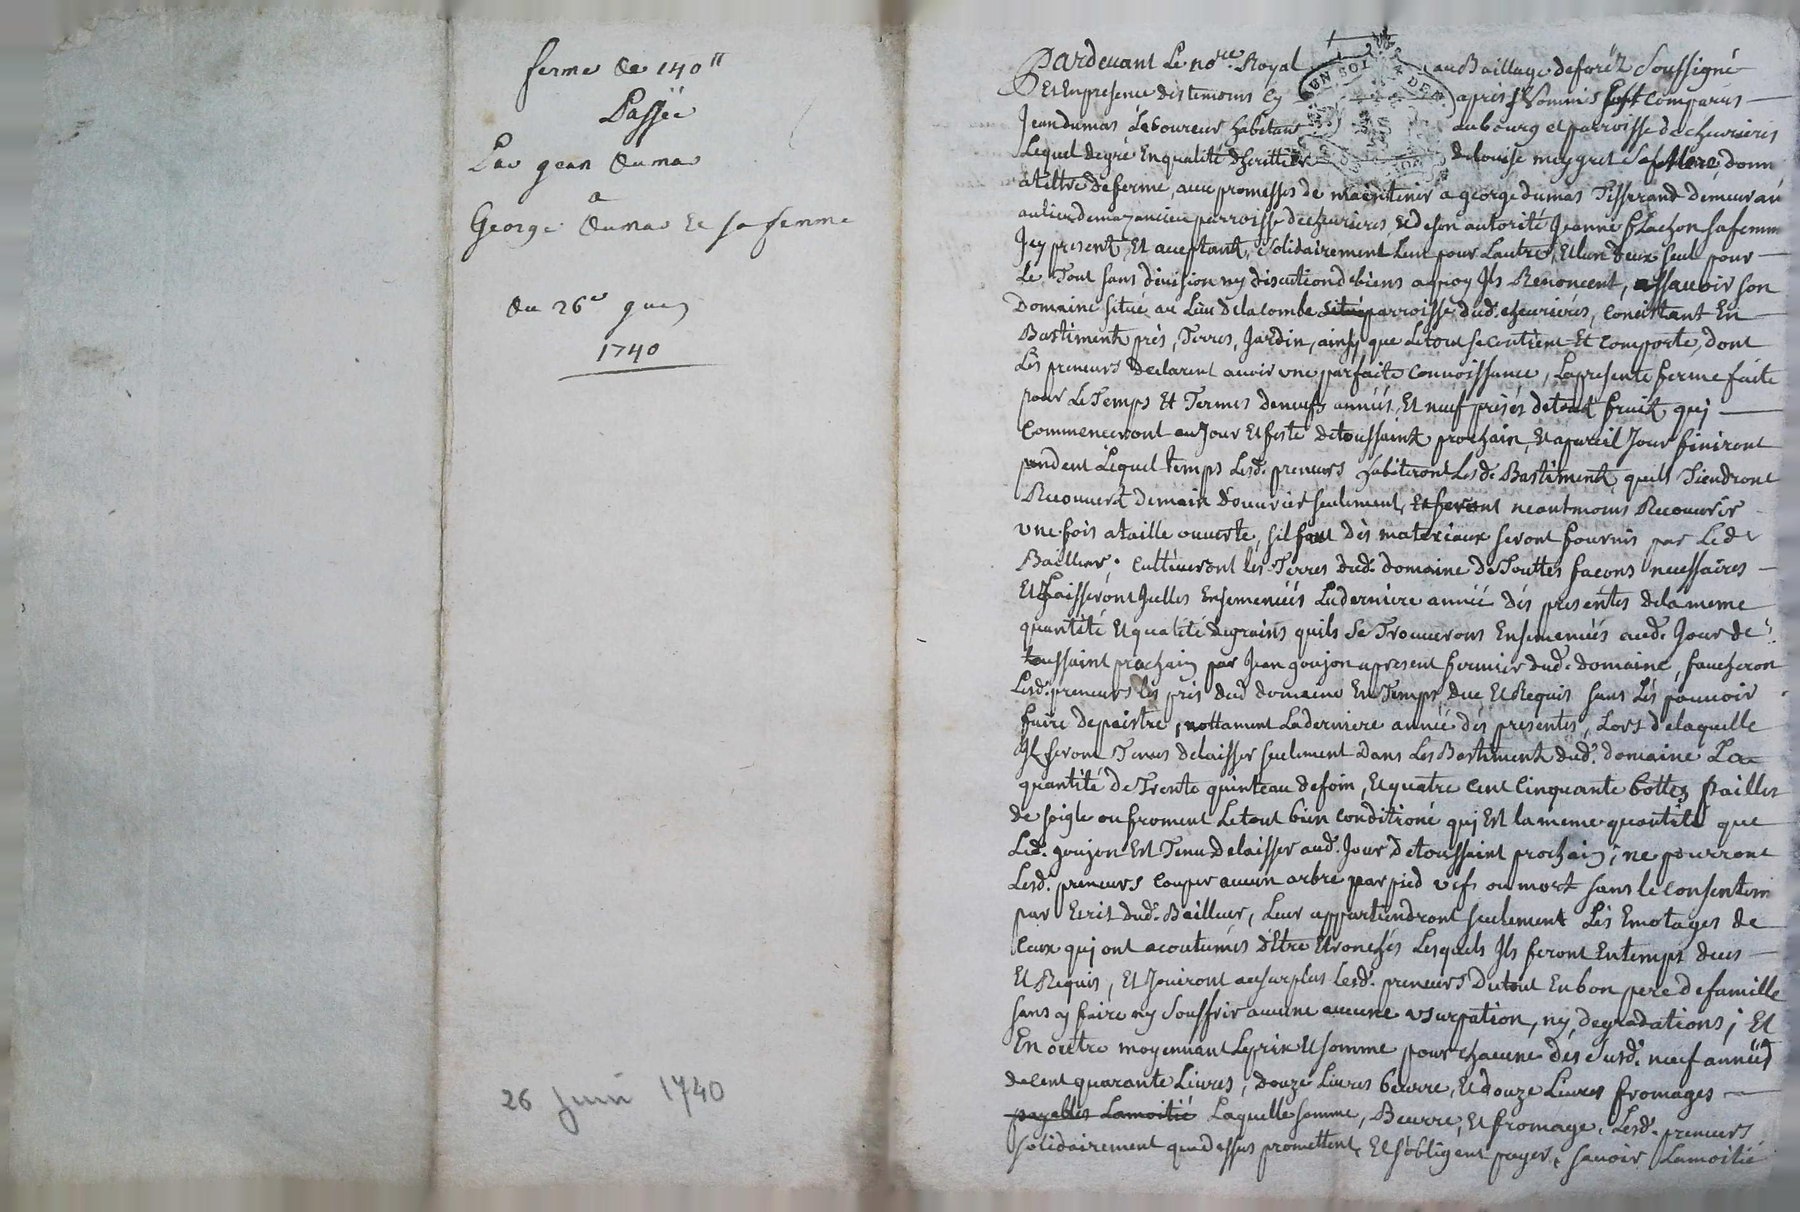 ferme de 140 ₶
Passée
Par jean dumas
a
George dumas et sa femme
du 26e juin
1740
26 juin 1740
Pardevant Le nore Royal au Baillage deforéz Soussigné
Et Enpresence des temoins Cy apres Nommés fust Comparus
Jean dumas Laboureur habitant aubourg et parroisse de chevrieres
Lequel degré Enqualité dheritier delouise meygret Sa Mere, donne
a tiltre deferme, aux promesses de maintenir a george dumas Tisserand demeurān
au lieu de parroisse de chevrieres & deson autorité Jeanne flachon safemme
Jcy present, Et aceptant, Solidairement Lun pour Lautre, Et lun deux Seul pour
Le Tout sans division ny discution de biens aquoy Ils Renoncent, assavoir son
Domaine situé au Lieu Delacombe situé parroisse dud. chevrieres, Consistant En
Bastiment, prés, Terres, Jardin, ainsy que Letout secontient Et Comporte, dont
Les preneurs declarent avoir une parfaite Connoissance, Lapresente ferme faite
pour Le Temps Et Termes deneufs années, Et neuf prises de tout fruit, quj
Commenceront au Jour Et feste detoussaint prochain, Et apareil Jour finiront
pendent Lequel temps Lesd. preneurs habiteront Lesd. Bastiment, quils Tiendront
Recouvert demain douvrier seulement, Et feront neantmoins Recouvrir
une fois ataille ouverte, sil faut des materiaux seront fournis par Led.
Bailleur. Cultiveront les Terres dud. domaine de Touttes facons necessaires
Et Laisseront Jcelles Ensemencées Laderniere année des presentes delameme
quantité Et qualité degrains quils Se Trouverons Ensemencées aud. Jour de
toussaint prochain par Jean goujon apresent fermier dud. domaine, faucheron
Lesd. preneurs les prés dud domaine En Temps due Et Requis sans Les pouvoir
faire depaistre, nottament Laderniere année des presentes, Lors delaquelle
Ils seront Tenus delaisser seulement Dans Les Bastiment dud. domaine La
quantité de Trente quinteau defoin, Et quatre Cent Cinquante bottes pailles
de seigle ou froment Letout bien Conditioné quj Est lameme quantité que
Led. goujon Est Tenu Delaisser aud. Jour Detoussaint prochain; ne pourront
Lesd. preneurs Couper aucun arbre par pied vif ou mort sans le Consentem
par Ecrit dud. Bailleur, Leur appartiendront seulement Les Emotages de
Ceux quj ont acoutumés dEtre Etronchés Lesquels Ils feront Entemps deus
Et Requis, Et Jouiront ausurplus Lesd. preneurs Dutout En bon pere defamille
sans y faire ny Souffrir aucune aucune usurpation, ny degradations; Et
En outre moyennant Leprix Et somme pour chacune des susd. neuf années
deCent quarante Livres, douze Livres beurre, Et douze Livres fromages
payables Lamoitié Laquelle somme, Beurre, Et fromage, Lesd. preneurs
solidairement quedessus promettent, Et sobligent payer, savoir Lamoitié